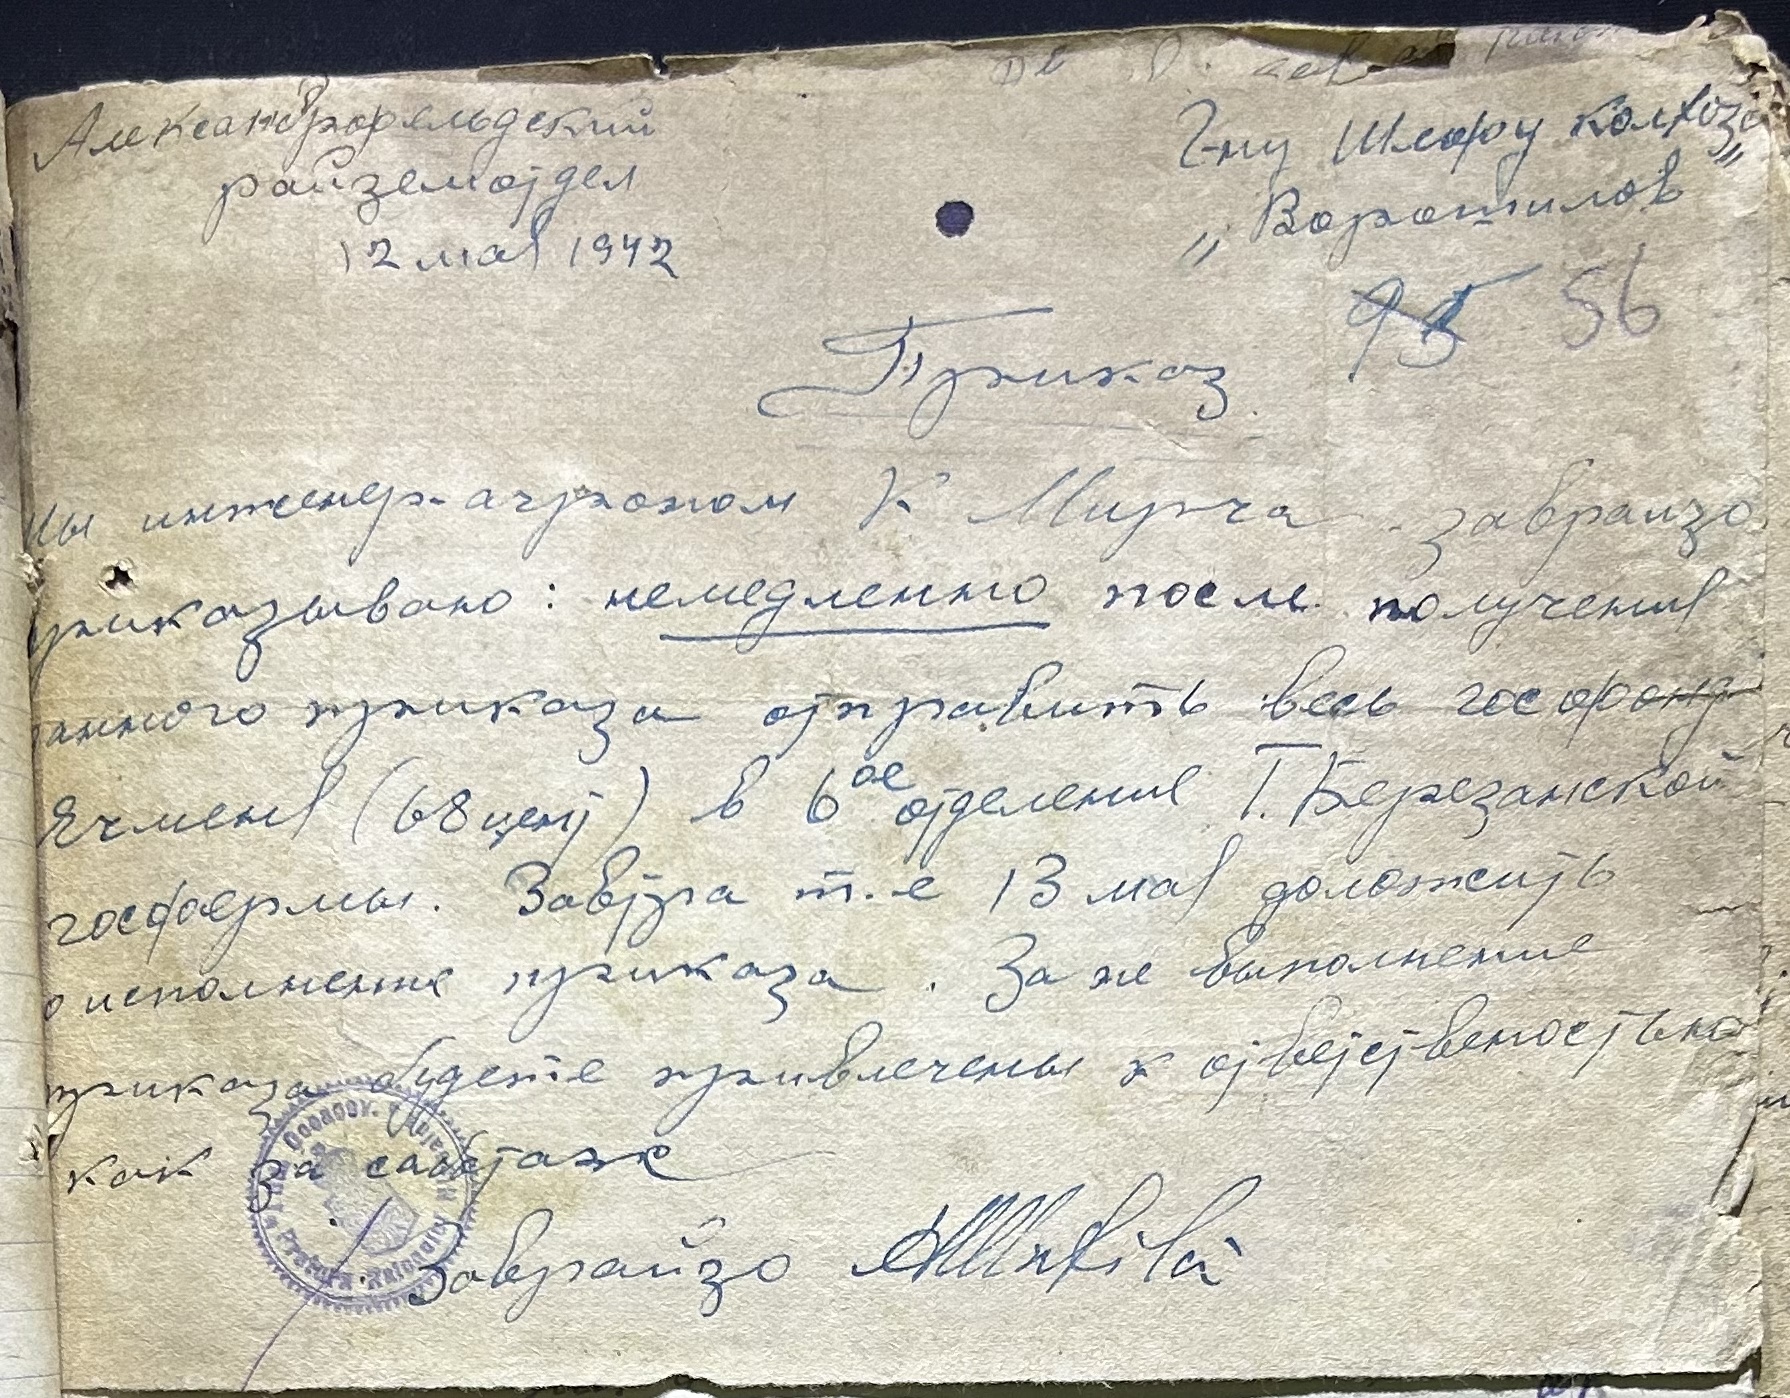 Александрофельдский
райземотдел
12 мая 1942
Г-ну Шефу колхоза
"Ворошилов"
95 56
Приказ
Мы инженер-агроном К Мирча завраизо
приказываю: немедленно после получения
данного приказа отправить весь госфонд
Ячменя (68 цент) в 6ое отделения Т. Березанской
госфермы. Завтра т.е 13 мая доложить
о исполнение приказа. За не выполнение
приказа будете привлечены к ответственостью
как за саботаж
Заврайзо